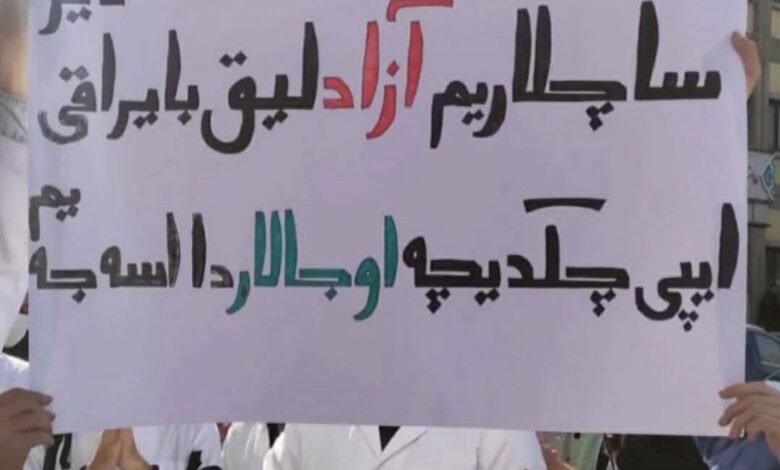 ساچلاریم آزادلیق بایراقی دیر
ایپی چکدیچه اوجالاردا اسه جه یم